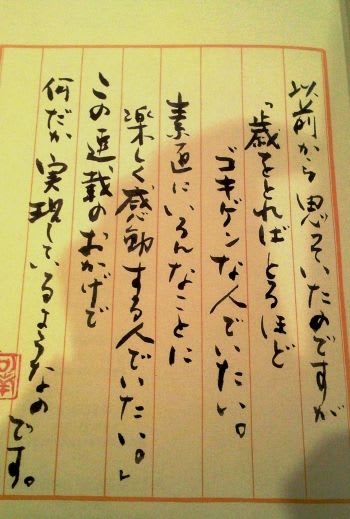 以前から思っていたのですが
「歳をとればとるほど
ゴキゲンな人でいたい。
素直にいろんなことに
楽しく感動する人でいたい。」
この連載のおかげで
何だか実現しているようなの
です。